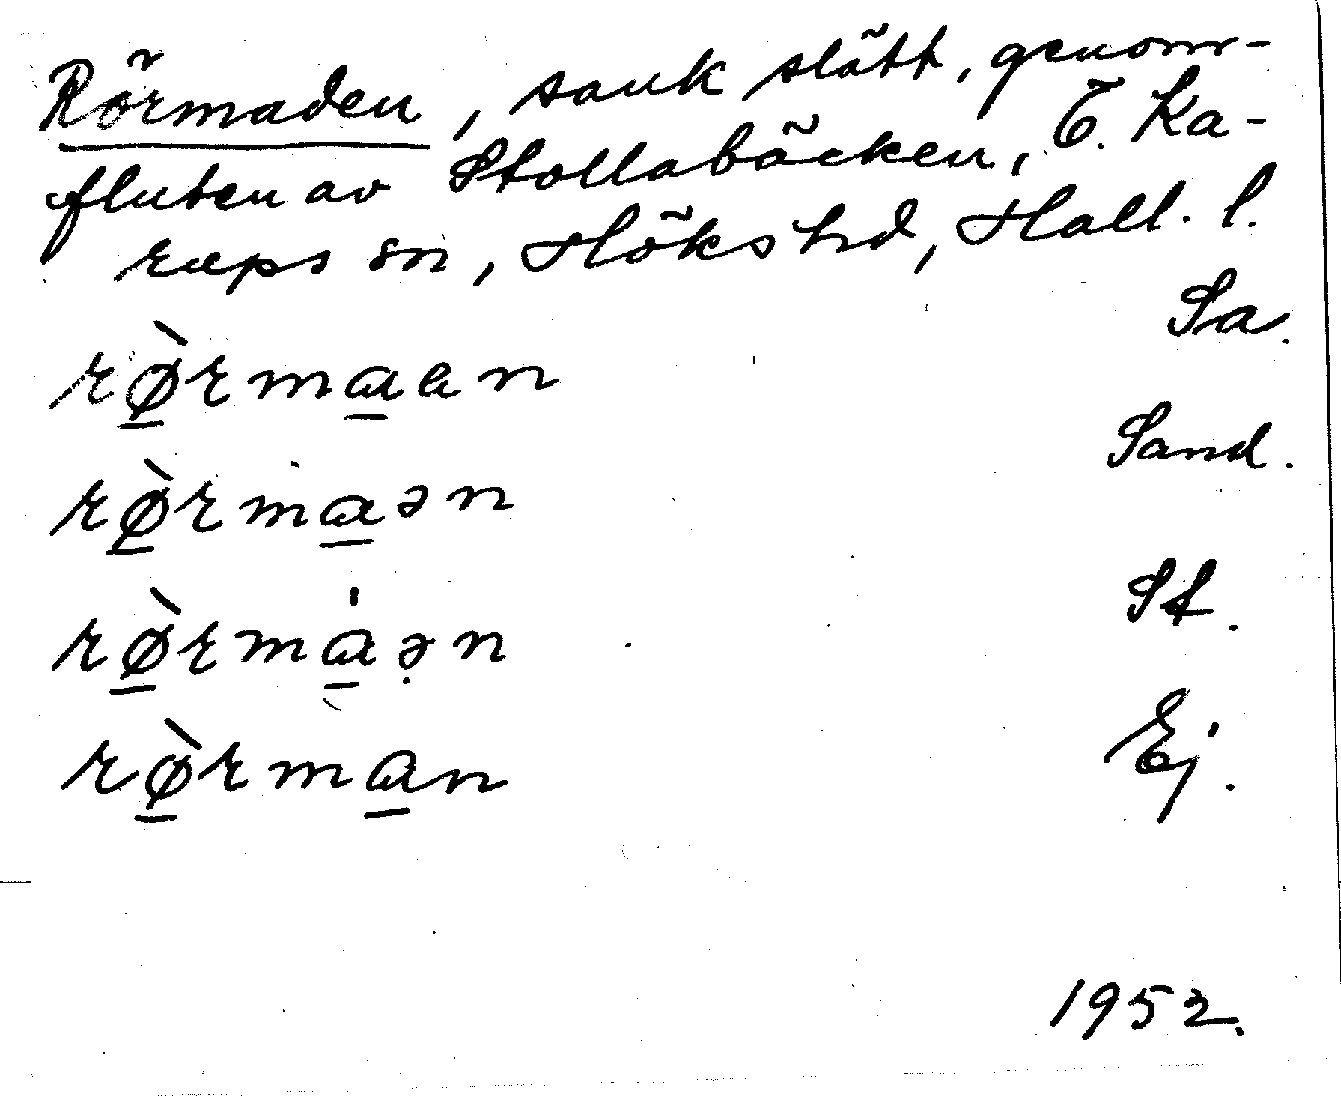 Rörmaden, sank slätt, genom-
fluten av Stollabäcken, Ö. Ka-
rups sn, Höks hd, Hall. l.
rø̱̀rma̱an Sa.
rø̱̀rma̱ən Sand.
rø̱̀rma̱̍ə̣n St.
rø̱̀rma̱n Ej.
1952.